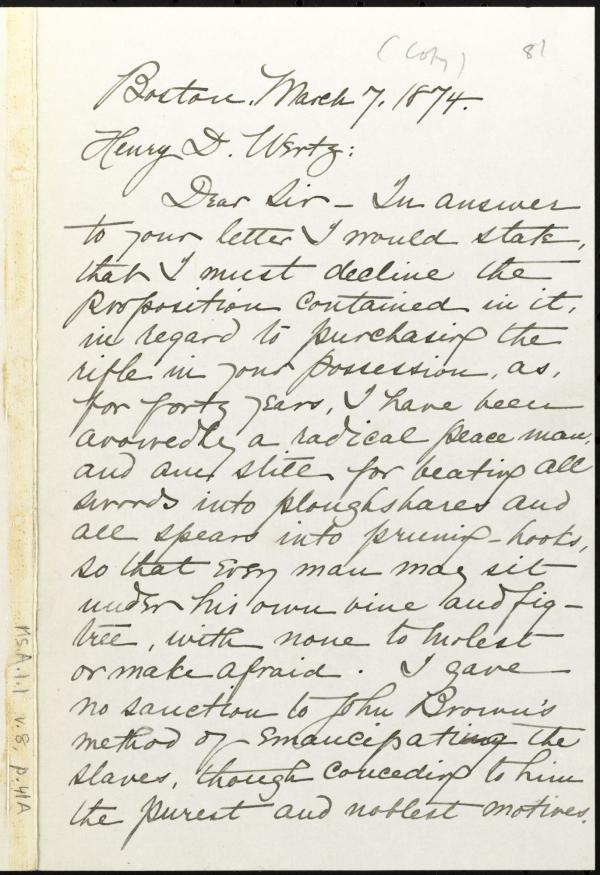 (Copy) 81
Boston, March 7, 1874.
Henry D. Wertz:
Dear Sir — In answer
to your letter I would state,
that I must decline the
proposition contained in it,
in regard to purchasing the
rifle in your possession, as,
for forty years, I have been
avowedly a radical peace man,
and am still for beating all
swords into ploughshares and
all spears into pruning-hooks,
so that every man may sit
under his own vine and fig-
tree, with none to molest
or make afraid. I gave
no sanction to John Brown's
method of emancipating the
slaves, though conceding to him
the purest and noblest motives.
Ms.A.1.1 v.8, p.41A